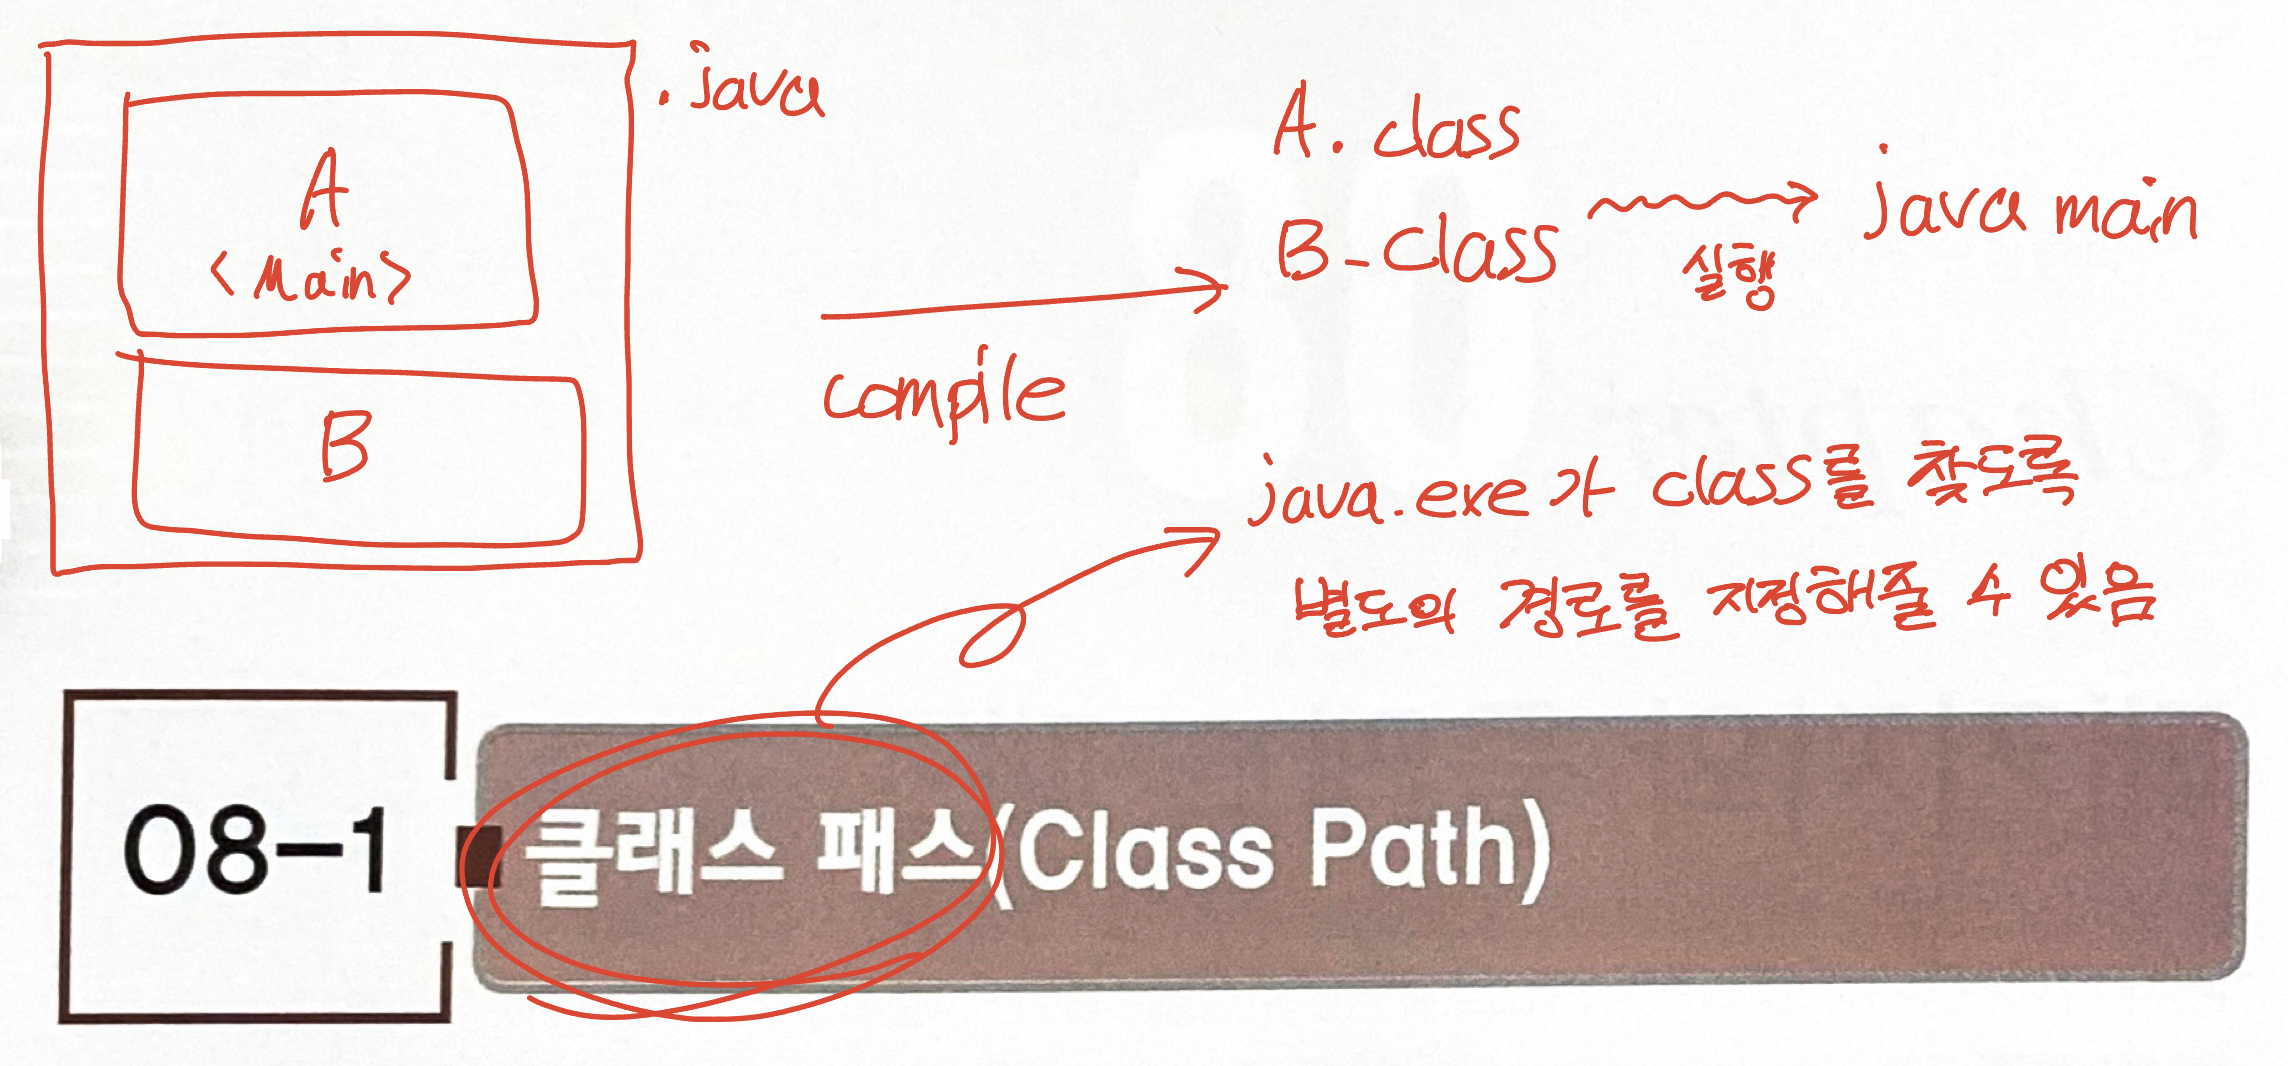 .java
A
<Main>
B
compile
A. class
B-Class
실행
java main
java.exe가 class를 찾도록
별도의 경로를 지정해줄 수 있음
08-1
클래스 패스(Class Path)